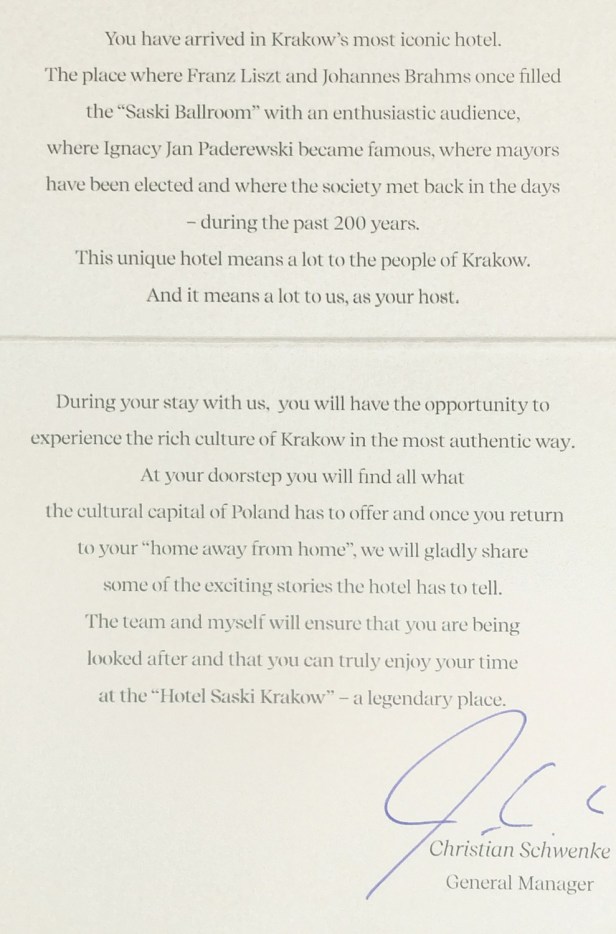 You have arrived in Krakow's most iconic hotel.
The place where Franz Liszt and Johannes Brahms once filled
the “Saski Ballroom” with an enthusiastic audience,
where Ignacy Jan Paderewski became famous, where mayors
have been elected and where the society met back in the days
– during the past 200 years.
This unique hotel means a lot to the people of Krakow.
And it means a lot to us, as your host.
During your stay with us, you will have the opportunity to
experience the rich culture of Krakow in the most authentic way.
At your doorstep you will find all what
the cultural capital of Poland has to offer and once you return
to your “home away from home”, we will gladly share
some of the exciting stories the hotel has to tell.
The team and myself will ensure that you are being
looked after and that you can truly enjoy your time
at the “Hotel Saski Krakow” – a legendary place.
Christian Schwenke
General Manager